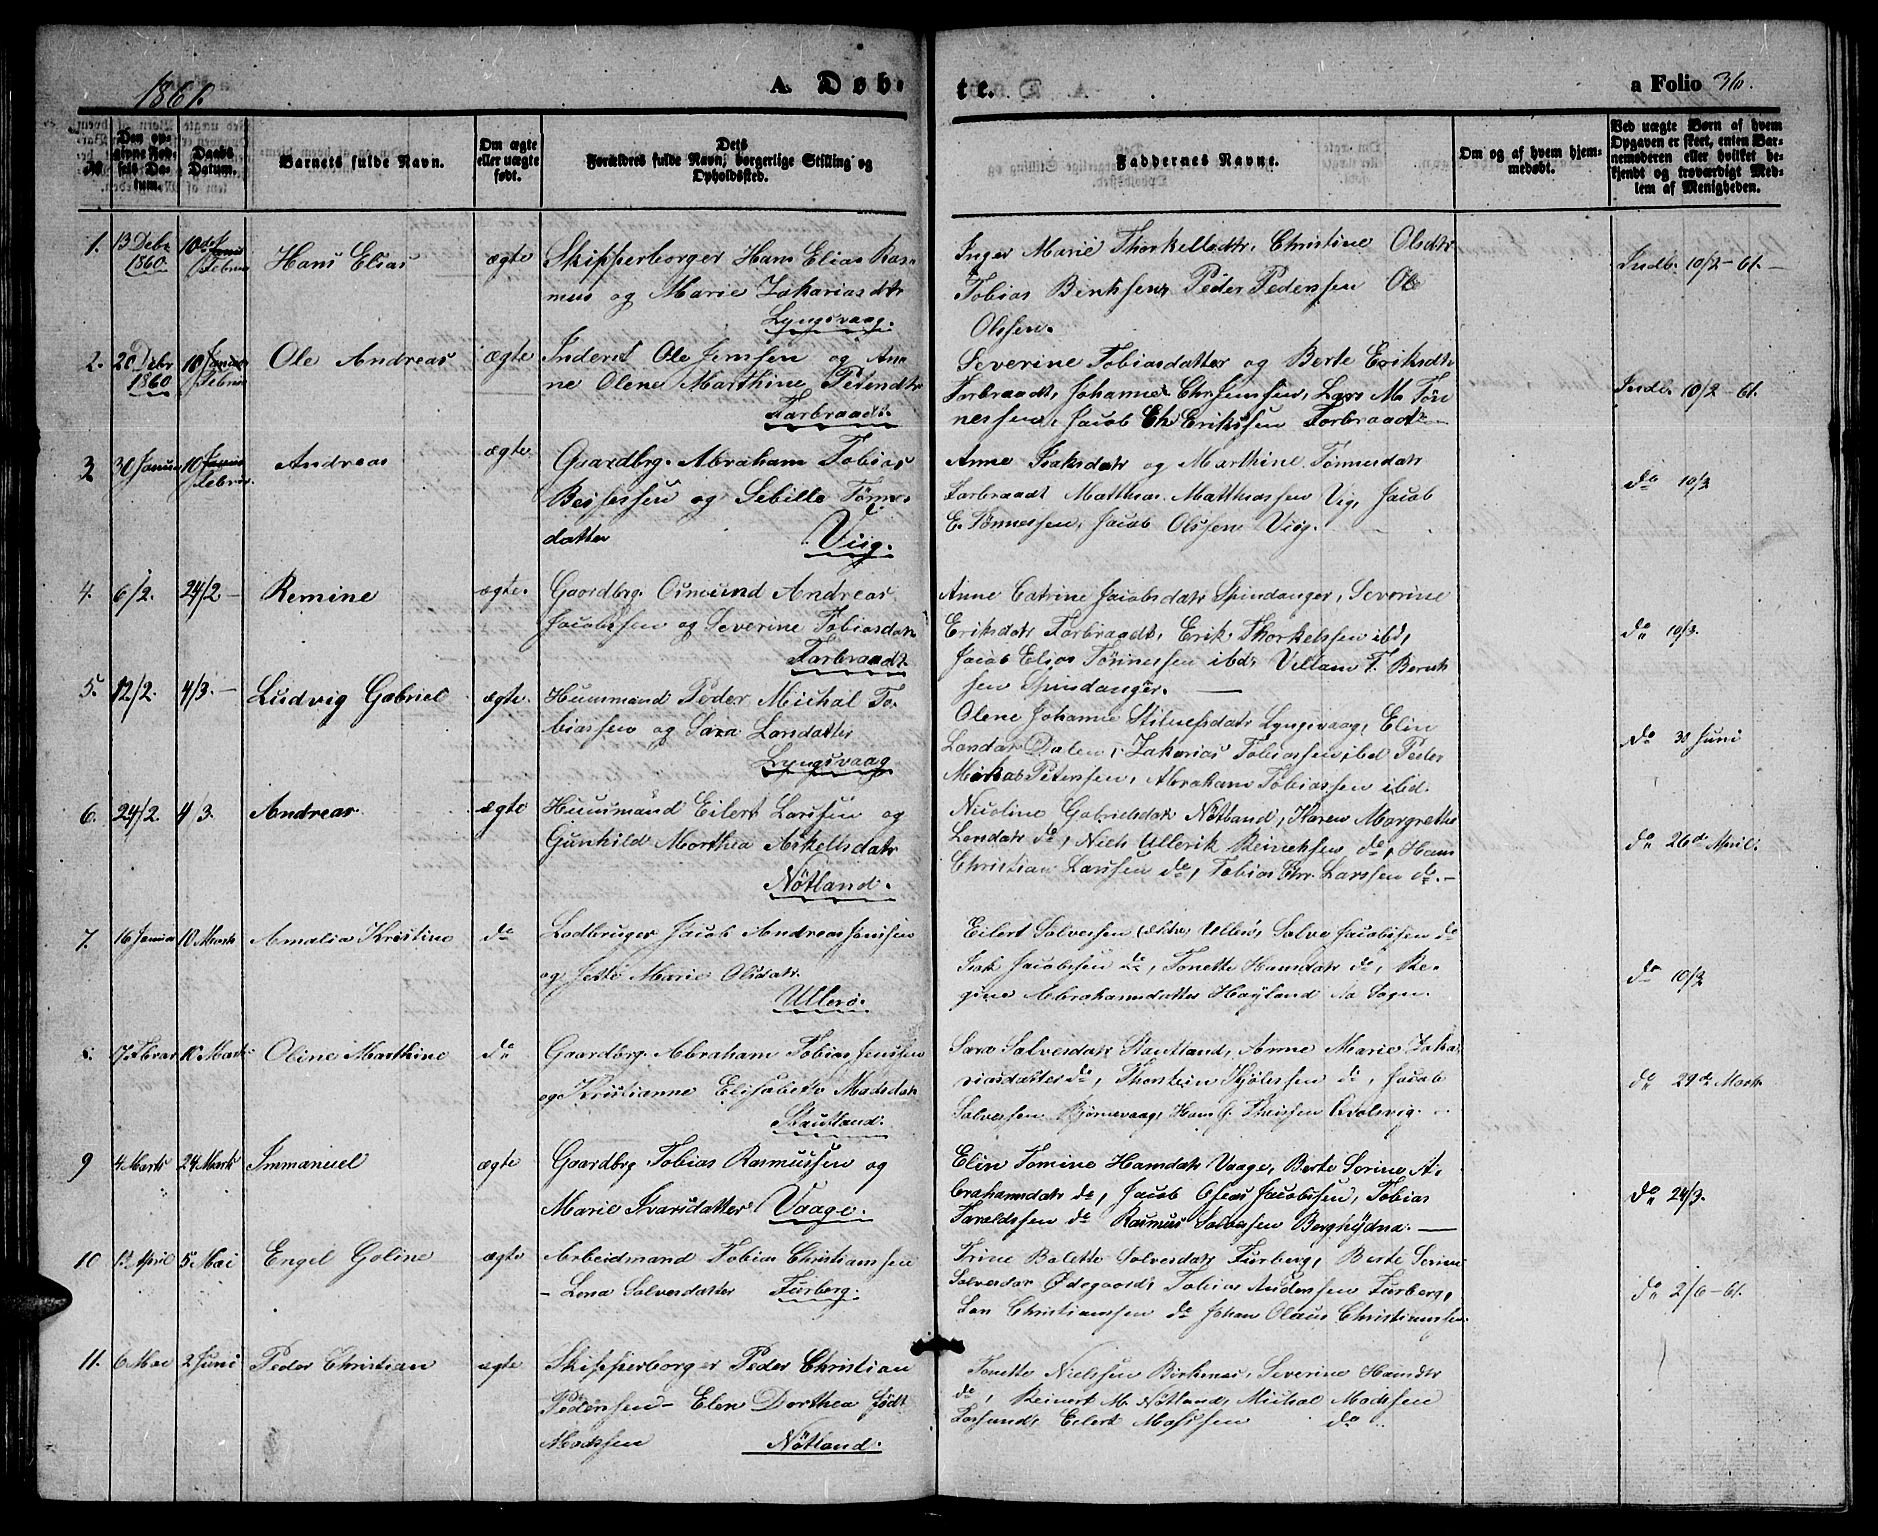 1861.
A. Døb-
te.
a Folio 36.
No.
Den opgivne Fødsels Datum.
Daabs Datum.
Barnets fulde Navn.
Om ægte eller uægte født.
Dets Forældres fulde Navn, borgerlige Stilling og Opholdssted.
Faddernes Navne.
Om og af hvem hjemmedøbt.
Ved uægte Børn af hvem Opgaven er skeet, enten Barnemoderen eller hvilket bekjendt og troværdigt Medlem af Menigheden.
1. 13 Debr 1860 10de Februar Hans Elias ægte Skipperborger Hans Elias Ras-
mus og Marie Zakariasdtr
Lyngsvaag.
Inger Marie Thorkelsdtr, Christine Olsdtr
Tobias Peder Pedersen Ole
Olssen.
Indb. 10/2-61.
2. 20 Debr 1860 10 Februar Ole Andreas ægte Inderst Ole Jenssen og An-
ne Olene Marthine Petersdtr
Farbraadt.
Severine Tobiasdatter og Berte Eriksdtr
Farbraadt, Johannes Chr. Jenssen, Lars M. Tøn
nessen, Jacob Chr Erikssen Farbraadt
Indb. 10/2-61.
3 30 Januar 10 Februar. Andreas ægte. Gaardbrg. Abraham Tobias
og Sebille Tønnes
datter Viig.
Anne Isaksdatr og Marthine Tønnesdatr
Farbraadt Matthias Matthiassen Vig, Jacob
E. Tønnessen, Jacob Olssen Viig.
do 10/2
4. 6/2. 24/2 Remine ægte. Gaardbrg. Osmund Andreas
Jacobssen og Severine Tobiasdatr
Farbraadt
Anne Catrine Jacobsdatr Spindanger, Severine
Eriksdatr Farbraadt, Erik Thorkelssen ibd,
Jacob Elias Tønnessen ibd, Villam T. Bernt
sen Spindanger.
do 10/3.
5. 12/2. 4/3. Ludvig Gabriel ægte. Huusmand Peder Michal To-
biassen og Sara Larsdatter
Lyngsvaag
Olene Johanne Lyngsvaag, Elen
Larsdatr Dalen, Zakarias Tobiassen ibd Peder
Mickal Peterssen, Abraham Tobiassen ibid.
do 30 Juni
6. 24/2. 4/3. Andreas. ægte Huusmand Eilert Larssen og
Gunhild Marthea Askelsdatr
Nøtland.
Nicoline Gabrielsdatr Nøtland, Karen Margrethe
Larsdatr do, Niels Ullerik Reinertsen do, Hans
Christian Larssen do, Tobias Chr. Larssen do.
do 26de April.
7. 16 Januar 10 Marts Amalia Kristine do Lodbruger Jacob Andreas Janssen
og Jette Marie Olsdatr
Ullerø.
Eilert Salvessen Ullerø, Salve Jacobssen do
Isak Jacobssen do, Tonette Hansdatr do, Re-
gine Abrahamsdatter Hayland Aa Sogn.
do 10/3
8. 17 Februar 10 Marts Oline Marthine do Gaardbrg. Abraham Tobias Janssen
og Kristianne Elisabeth Madsdatr
Stautland.
Sara Salvesdatr Stautland, Anne Marie Zaka
riasdatter do, Thorstein Kjølessen do, Jacob
Salvessen Bjørnevaag, Hans G. Theissen Qvalevig.
do 29de Marts
9 4 Marts 24 Marts Immanuel ægte Gaardbrg Tobias Rasmussen og
Marie Ivarsdatter Vaage.
Elen Tomine Hansdatr Vaage, Berte Serine A-
brahamsdatr do, Jacob Oseas Jacobssen, Tobias
Taraldssen do Rasmus Berghødna.
do 24/3.
10 13 April 5 Mai Engel Goline ægte Arbeidmand Tobias Christianssen
- Lena Salvesdatter Furberg.
Trine Bolette Salvesdatr Furberg, Berte Serine
Salvesdatr Ødegaard, Tobias Andersen Furberg,
Lars Christianssen do Johan Olaus Christianssen.
do 2/6-61.
11. 6 Mai 2 Juni Peder Christian ægte Skipperborger Peder Christian
Pedersen - Elen Dorthea født
Madssen Nøtland.
Tonette Nielssen Birkenes, Severine Hansdtr
do, Reinert M. Nøtland, Michal Madssen
Farsund, Eilert do